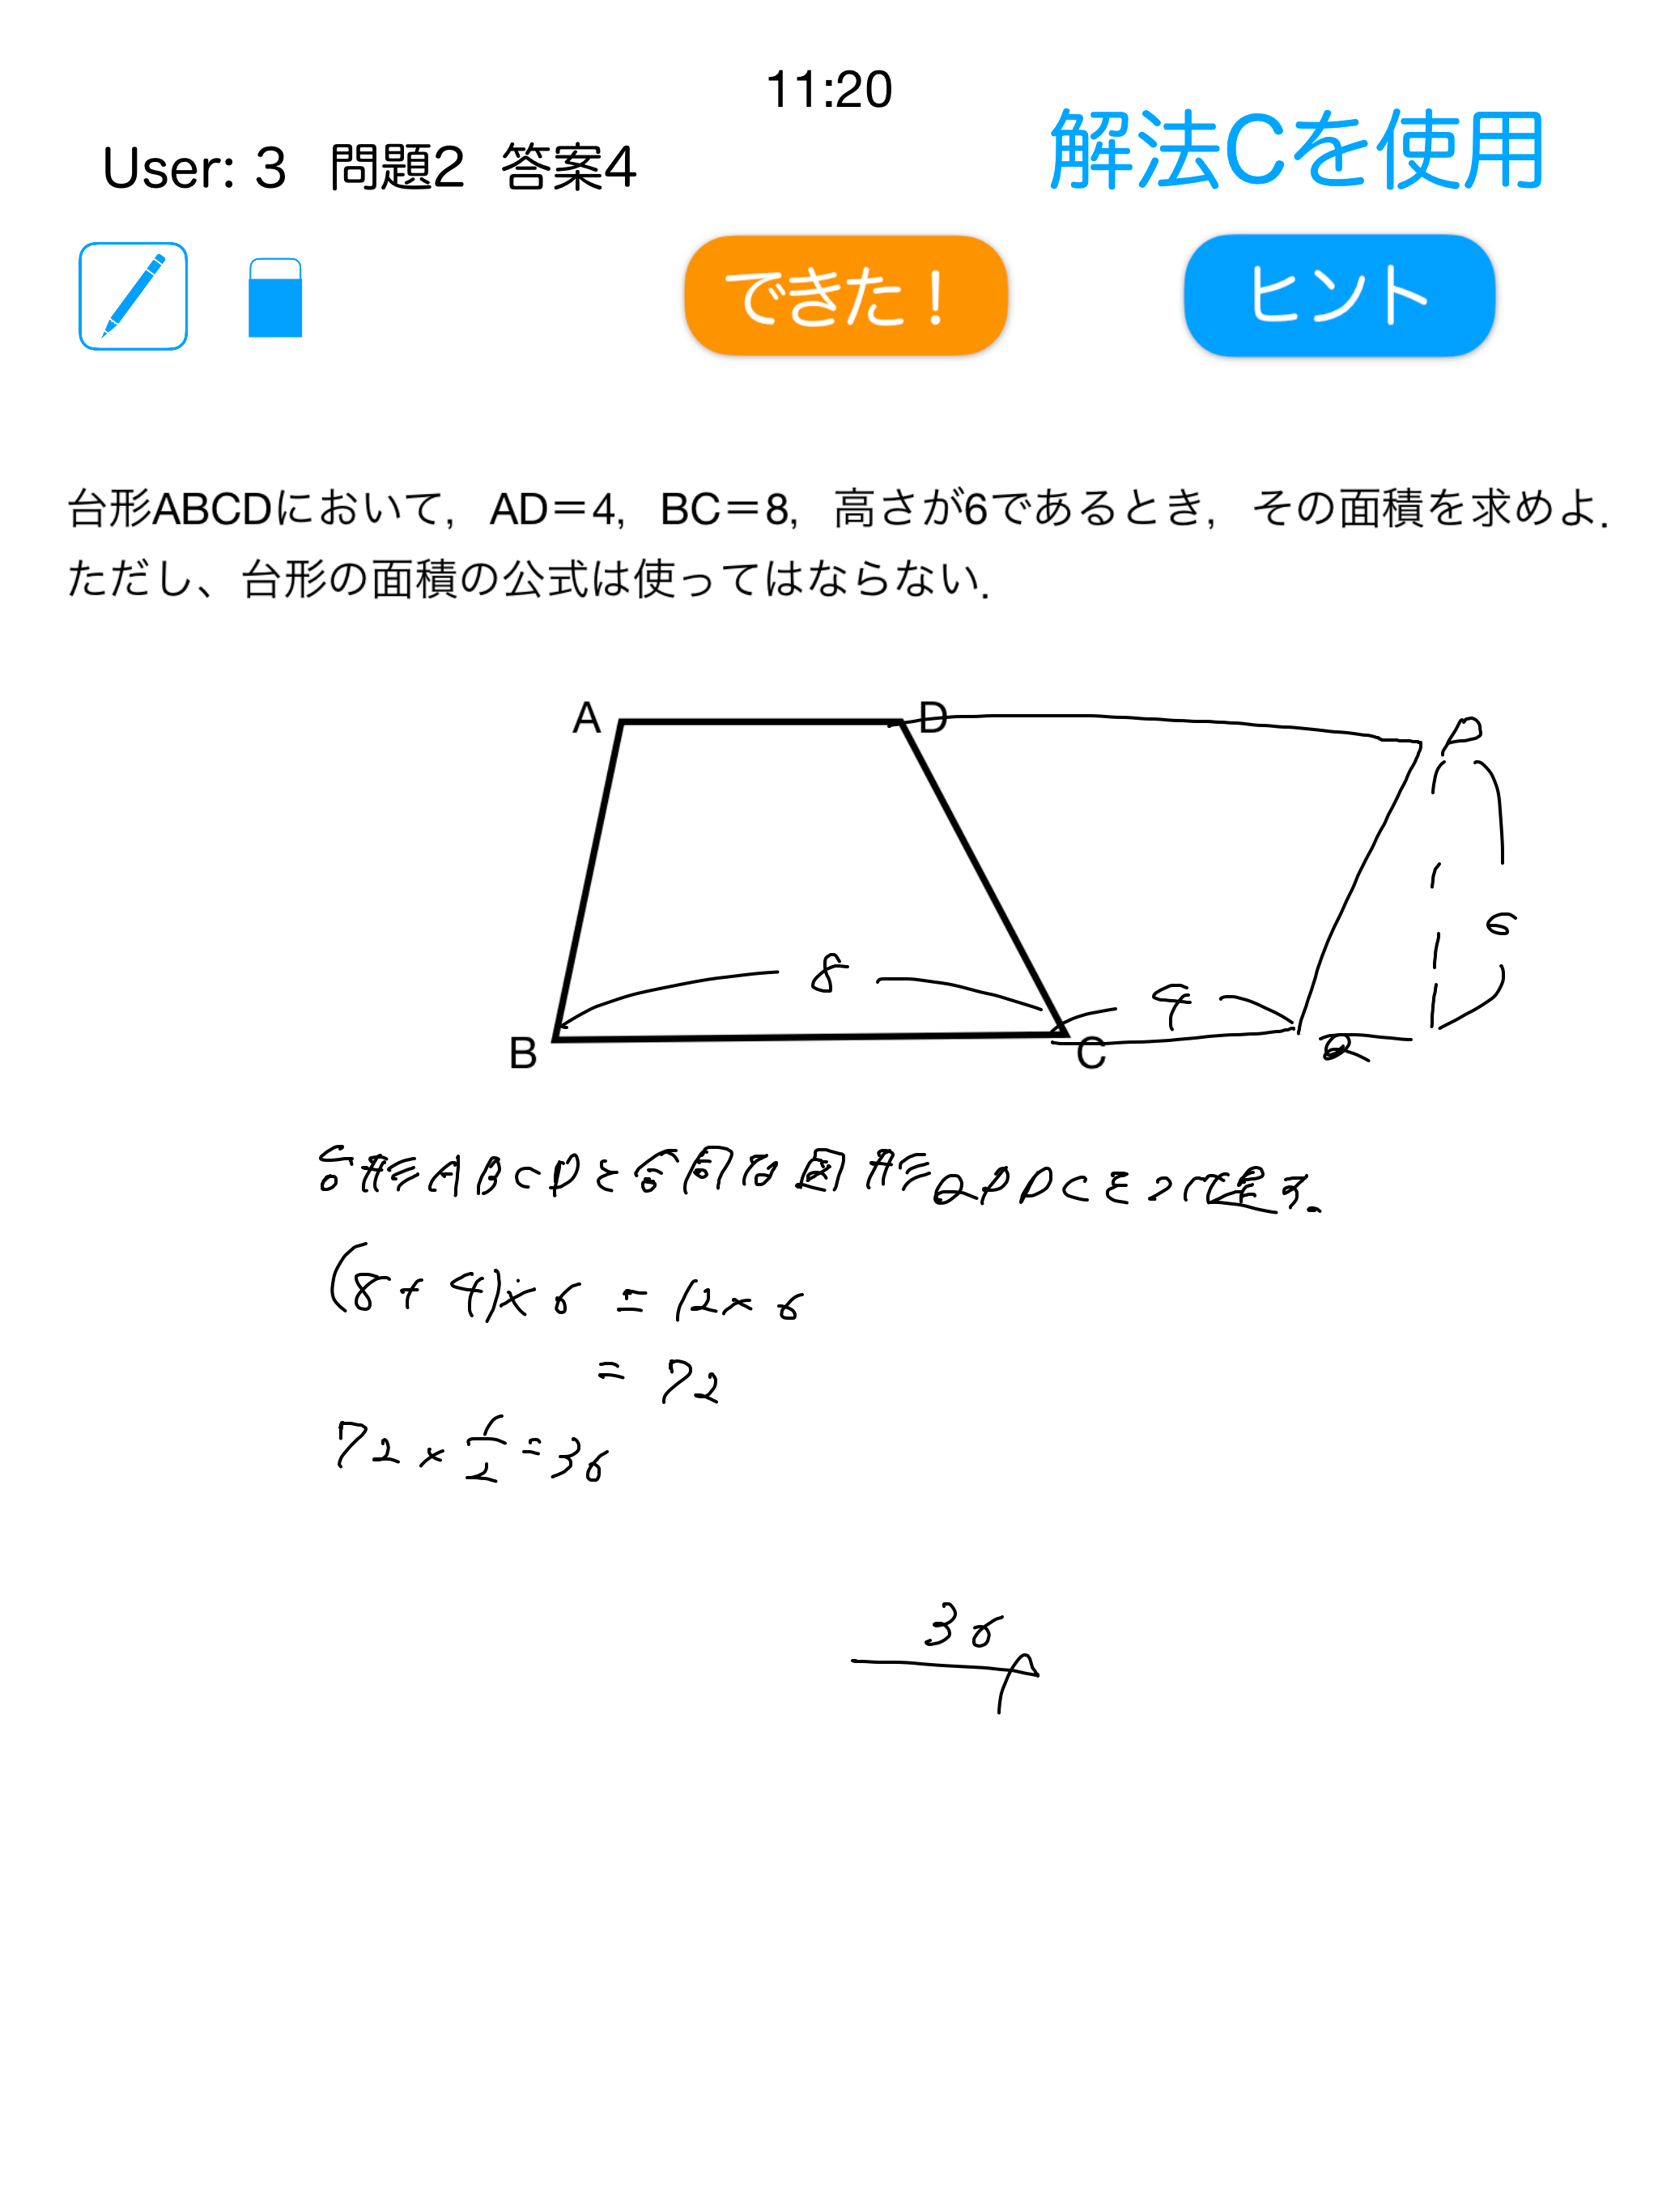 11:20
User: 3 問題2 答案4
解法Cを使用
できた！
ヒント
台形ABCDにおいて，AD＝4，BC＝8，高さが6であるとき，その面積を求めよ．
ただし、台形の面積の公式は使ってはならない．
A D P
8 4 6
B C Q
台形ABCDと合同な図形QPDCを
(8+4)×6=12×6
=72
72×1/2=36
36